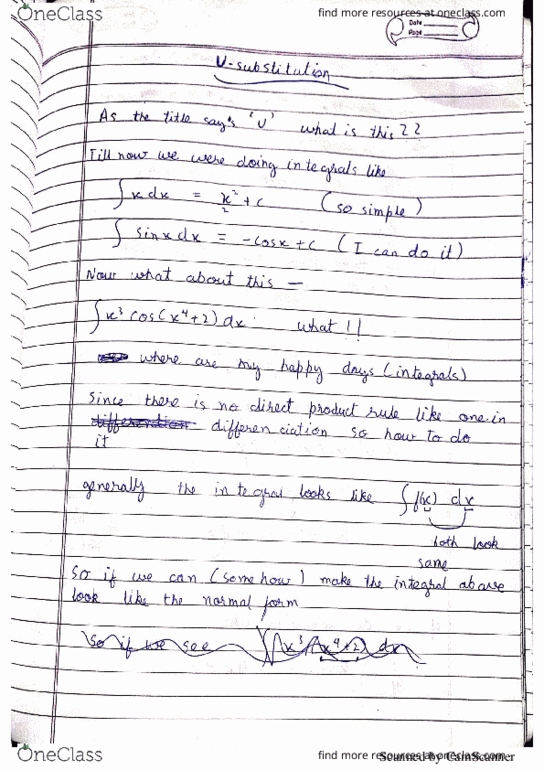 OneClass
find more resources at oneclass.com
Date
Page
U-substitution
As the title say's 'U' what is this ??
Till now we were doing integrals like
∫ x dx = x²/2 + c (so simple)
∫ sinx dx = -cosx + c (I can do it)
Now what about this —
∫ x³ cos(x⁴+2) dx what !!
where are my happy days (integrals)
Since there is no direct product rule like one in
differention differenciation so how to do
it
generally the integral looks like ∫ f(x) dx
both look
same
So if we can (somehow) make the integral above
look like the normal form
So if we see ∫ x³ (x⁴+2) dx
OneClass
find more resources at oneclass.com
Scanned by CamScanner